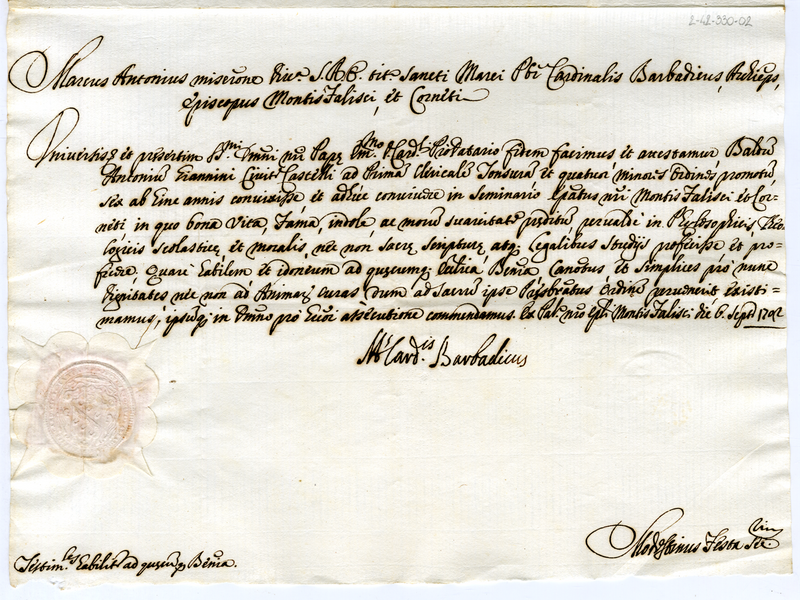 2-42-330-02
Marcus Antonius miserõne Divã S.R.E. titõ Sancti Marci Pbr Cardinalis Barbadicus, Archiepõs,
Episcopus Montis Falisci, et Corneti
Universis et presertim Papę fidem facimus et attestamur
Antoniũ Giannini Civit Castelli ad Primã Clericalẽ Tonsurã et quatuor minores Ordines promotũ
sex ab hinc annis convixisse et adhuc convivere in Seminario nri Montis Falisci et Cor-
neti in quo bona Vita, Fama, indole ac morũ suavitate prditũ, pervalde in Philosophicis, Theo-
logicis scolasticę, et moralis, nec non Sacrę Scripturę, atq Legalibus Studijs profecisse et pro-
ficere. Quare habilem et idoneum ad quęcumq; Benã Canotus et Simplices pro nunc
dignitates nec non ad Animarũ curas dum ad Sacrũ ipse Pręsbrãtus Ordinẽ pruenerit existi-
mamus, ipsũq; in Dnno pro Eccor assecutione commendamus. Ex Pal. nro epli Montis Falisci die 6. Septr 1702
M. Card.is Barbadicus
Modestinus Testa
Testim.les habilit ad quęcũq Benia.